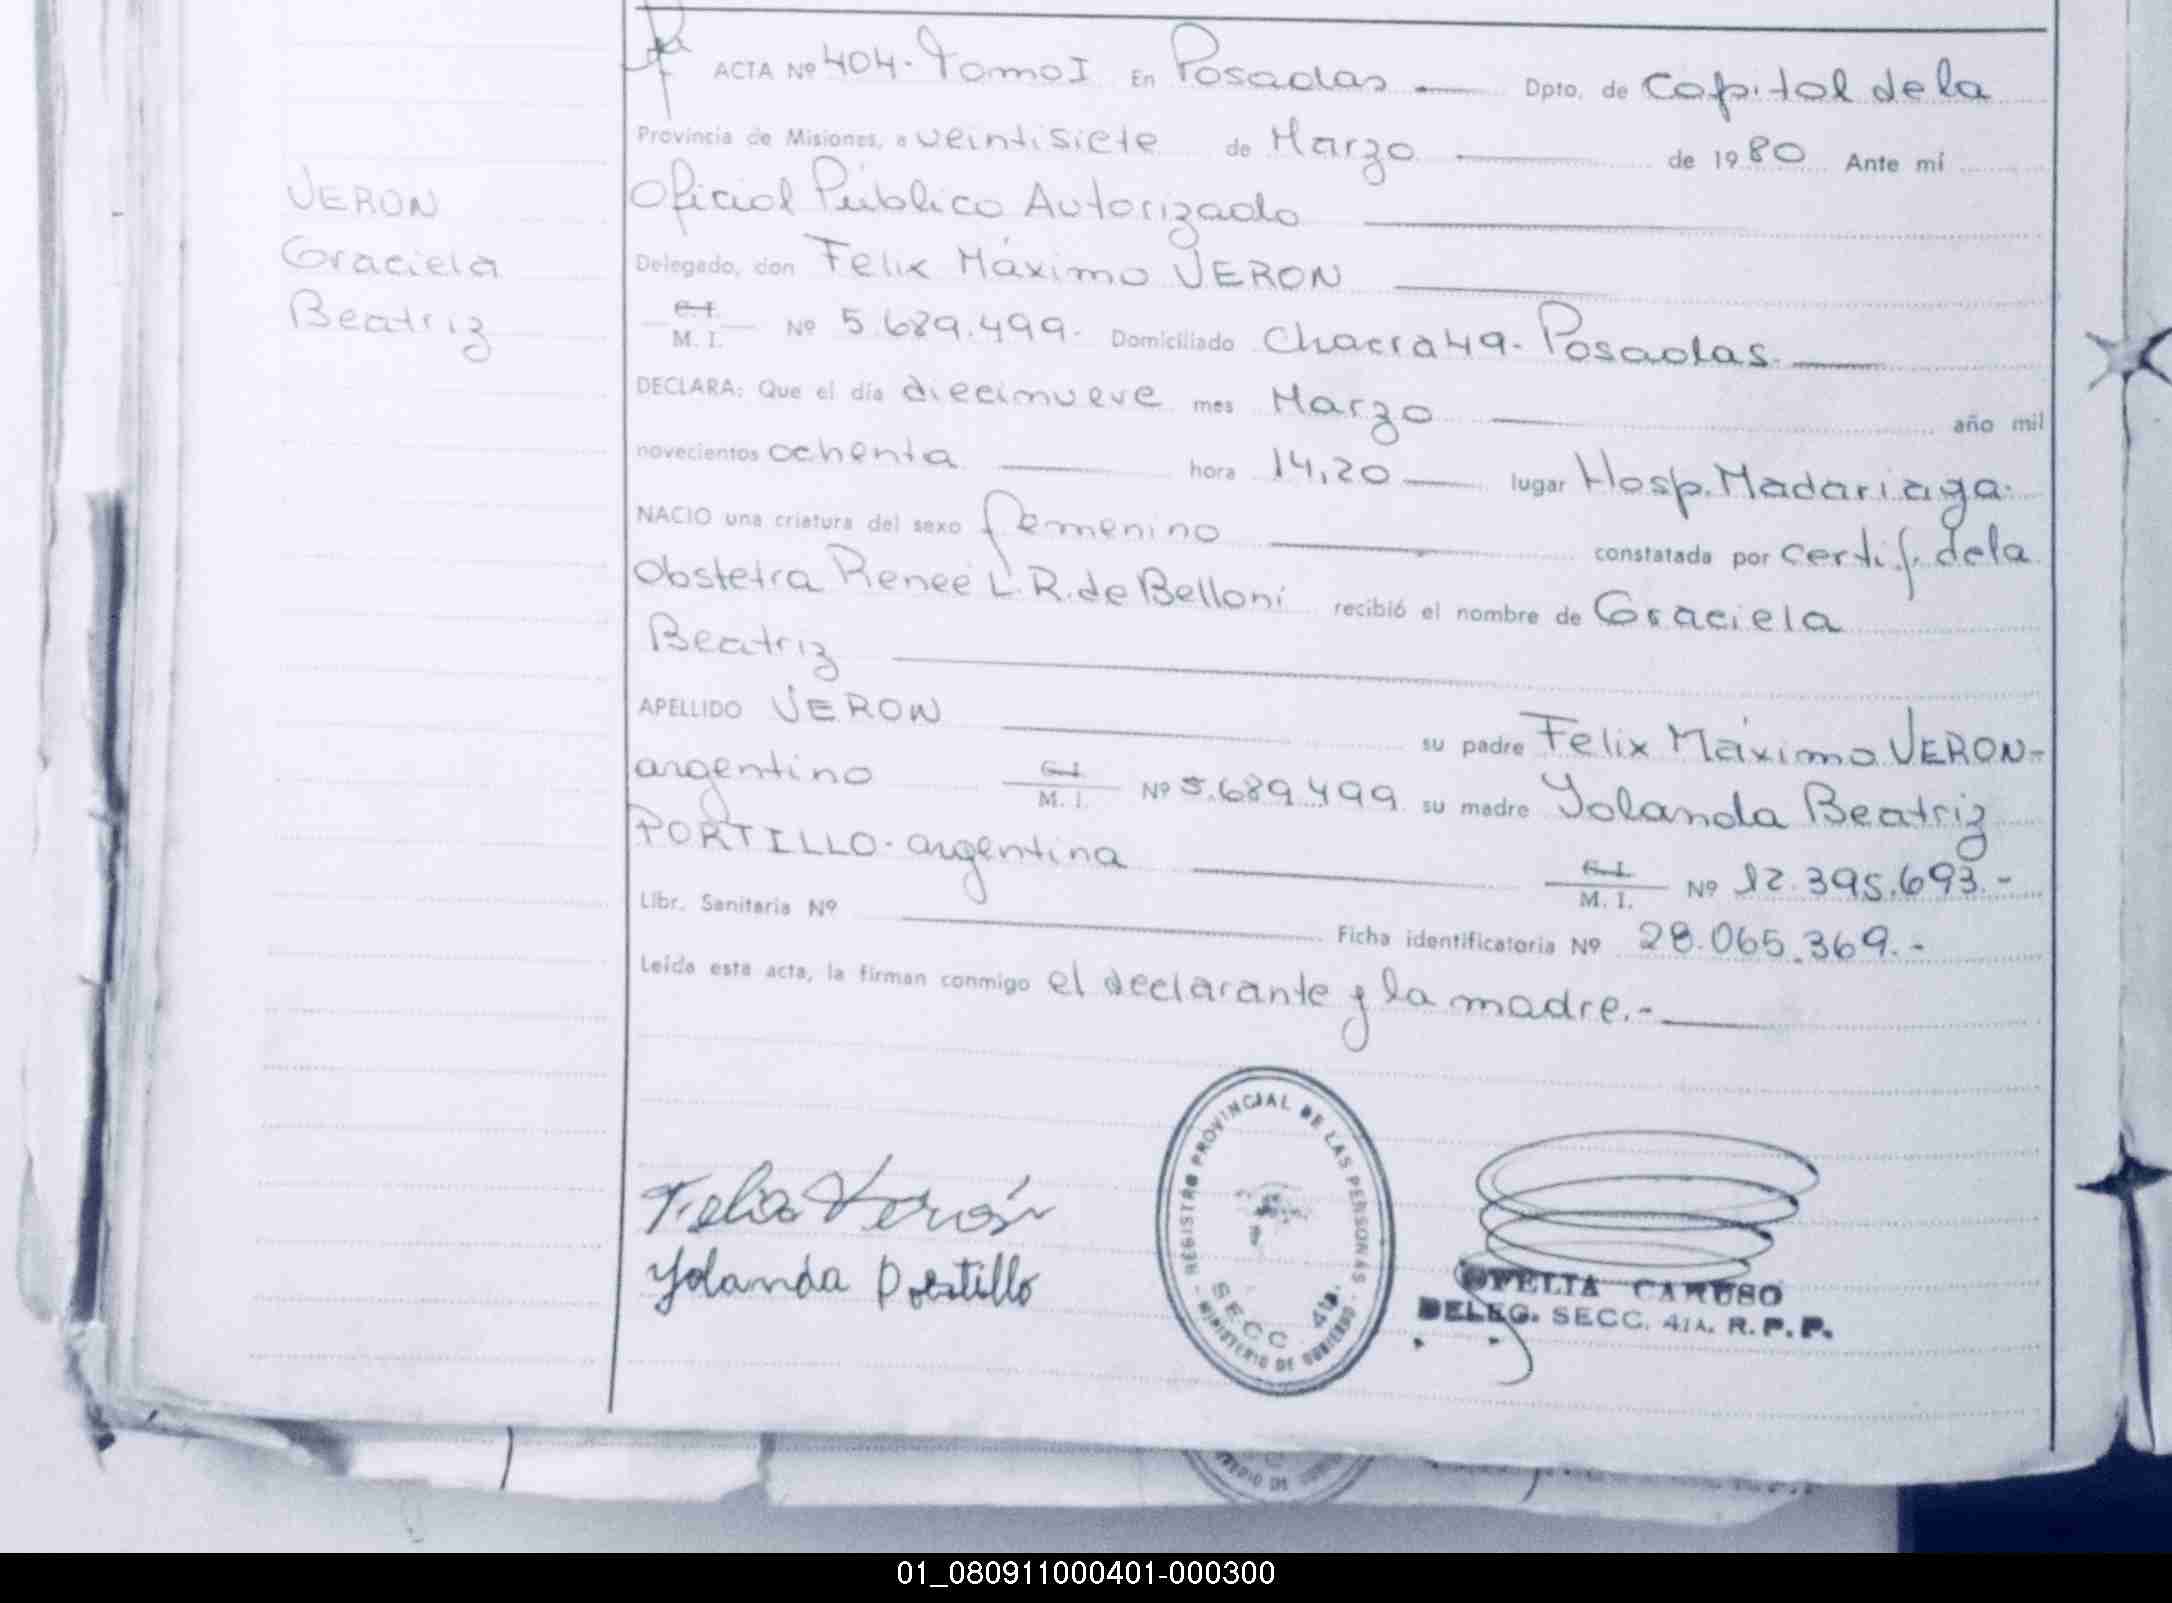 ACTA Nº 404. Tomo I En Posadas Dpto. de Capital de la
Provincia de Misiones, a veintisiete de Marzo de 1980 Ante mí
VERON
Graciela
Beatriz
Oficial Público Autorizado
Delegado, don Felix Máximo VERON
C.I.
M. I. Nº 5.689.499. Domiciliado Chacra 49. Posadas.
DECLARA: Que el día diecinueve mes Marzo año mil
novecientos ochenta hora 14,20 lugar Hosp. Madariaga.
NACIO una criatura del sexo femenino constatada por certif. de la
Obstetra Renee L. R. de Belloni recibió el nombre de Graciela
Beatriz
APELLIDO VERON su padre Felix Máximo VERON-
argentino C.I. M. I. Nº 5.689.499 su madre Yolanda Beatriz
PORTILLO. argentina C.I. M. I. Nº 12.395.693.-
Libr. Sanitaria Nº Ficha identificatoria Nº 28.065.369.-
Leída esta acta, la firman conmigo el declarante y la madre.-
Felix Verón
Yolanda Portillo
REGISTRO PROVINCIAL DE LAS PERSONAS
SECC. 4ta.
- MINISTERIO DE GOBIERNO -
OFELIA CARUSO
DELEG. SECC. 4TA. R. P. P.
01_080911000401-000300